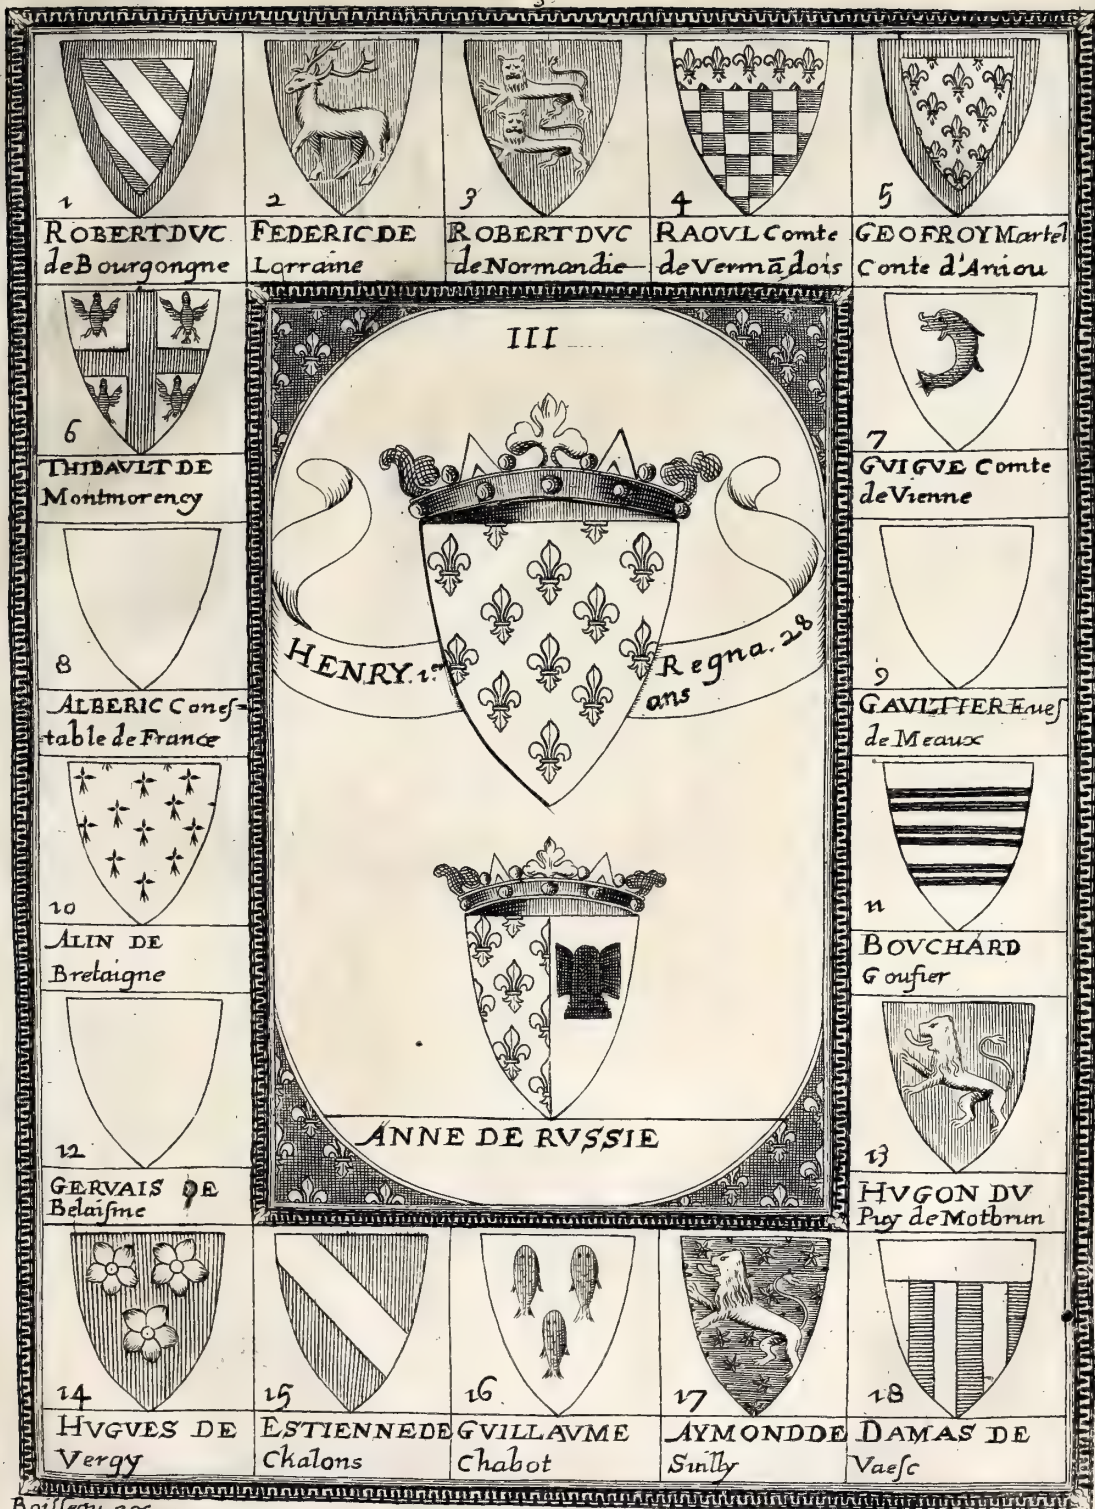 3
1
ROBERT DVC
de Bourgongne
2
FEDERIC DE
Lorraine
3
ROBERT DVC
de Normandie
4
RAOVL Comte
de Vermãdois
5
GEOFROY Martel
Conte d'Aniou
III
HENRY. 1.er
Regna. 28
ans
ANNE DE RVSSIE
6
THIBAVLT DE
Montmorency
7
GVIGVE Comte
de Vienne
8
ALBERIC Cones-
table de France
9
GAVLTIER Eues
de Meaux
10
ALIN DE
Bretaigne
11
BOVCHARD
Goufier
12
GERVAIS DE
Belaisme
13
HVGON DV
Puy de Motbrun
14
HVGVES DE
Vergy
15
ESTIENNE DE
Chalons
16
GVILLAVME
Chabot
17
AYMOND DE
Suilly
18
DAMAS DE
Vaesc
Boisseau